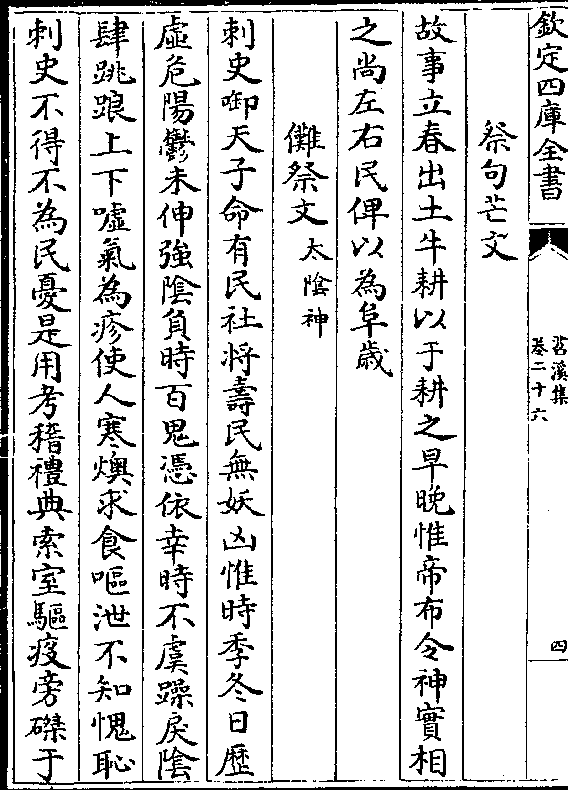 欽定四庫全書
苕溪集
卷二十六
四
祭句芒文
故事立春出土牛耕以于耕之早晚惟帝布令神實相
之尚左右民俾以為阜歳
儺祭文太隂神
刺史啣天子命有民社將壽民無妖凶惟時季冬日歴
虚危陽鬱未伸強隂負時百鬼憑依幸時不虞躁戾隂
肆跳踉上下嘘氣為疹使人寒燠求食嘔泄不知愧恥
刺史不得不為民憂是用考稽禮典索室驅疫旁磔于